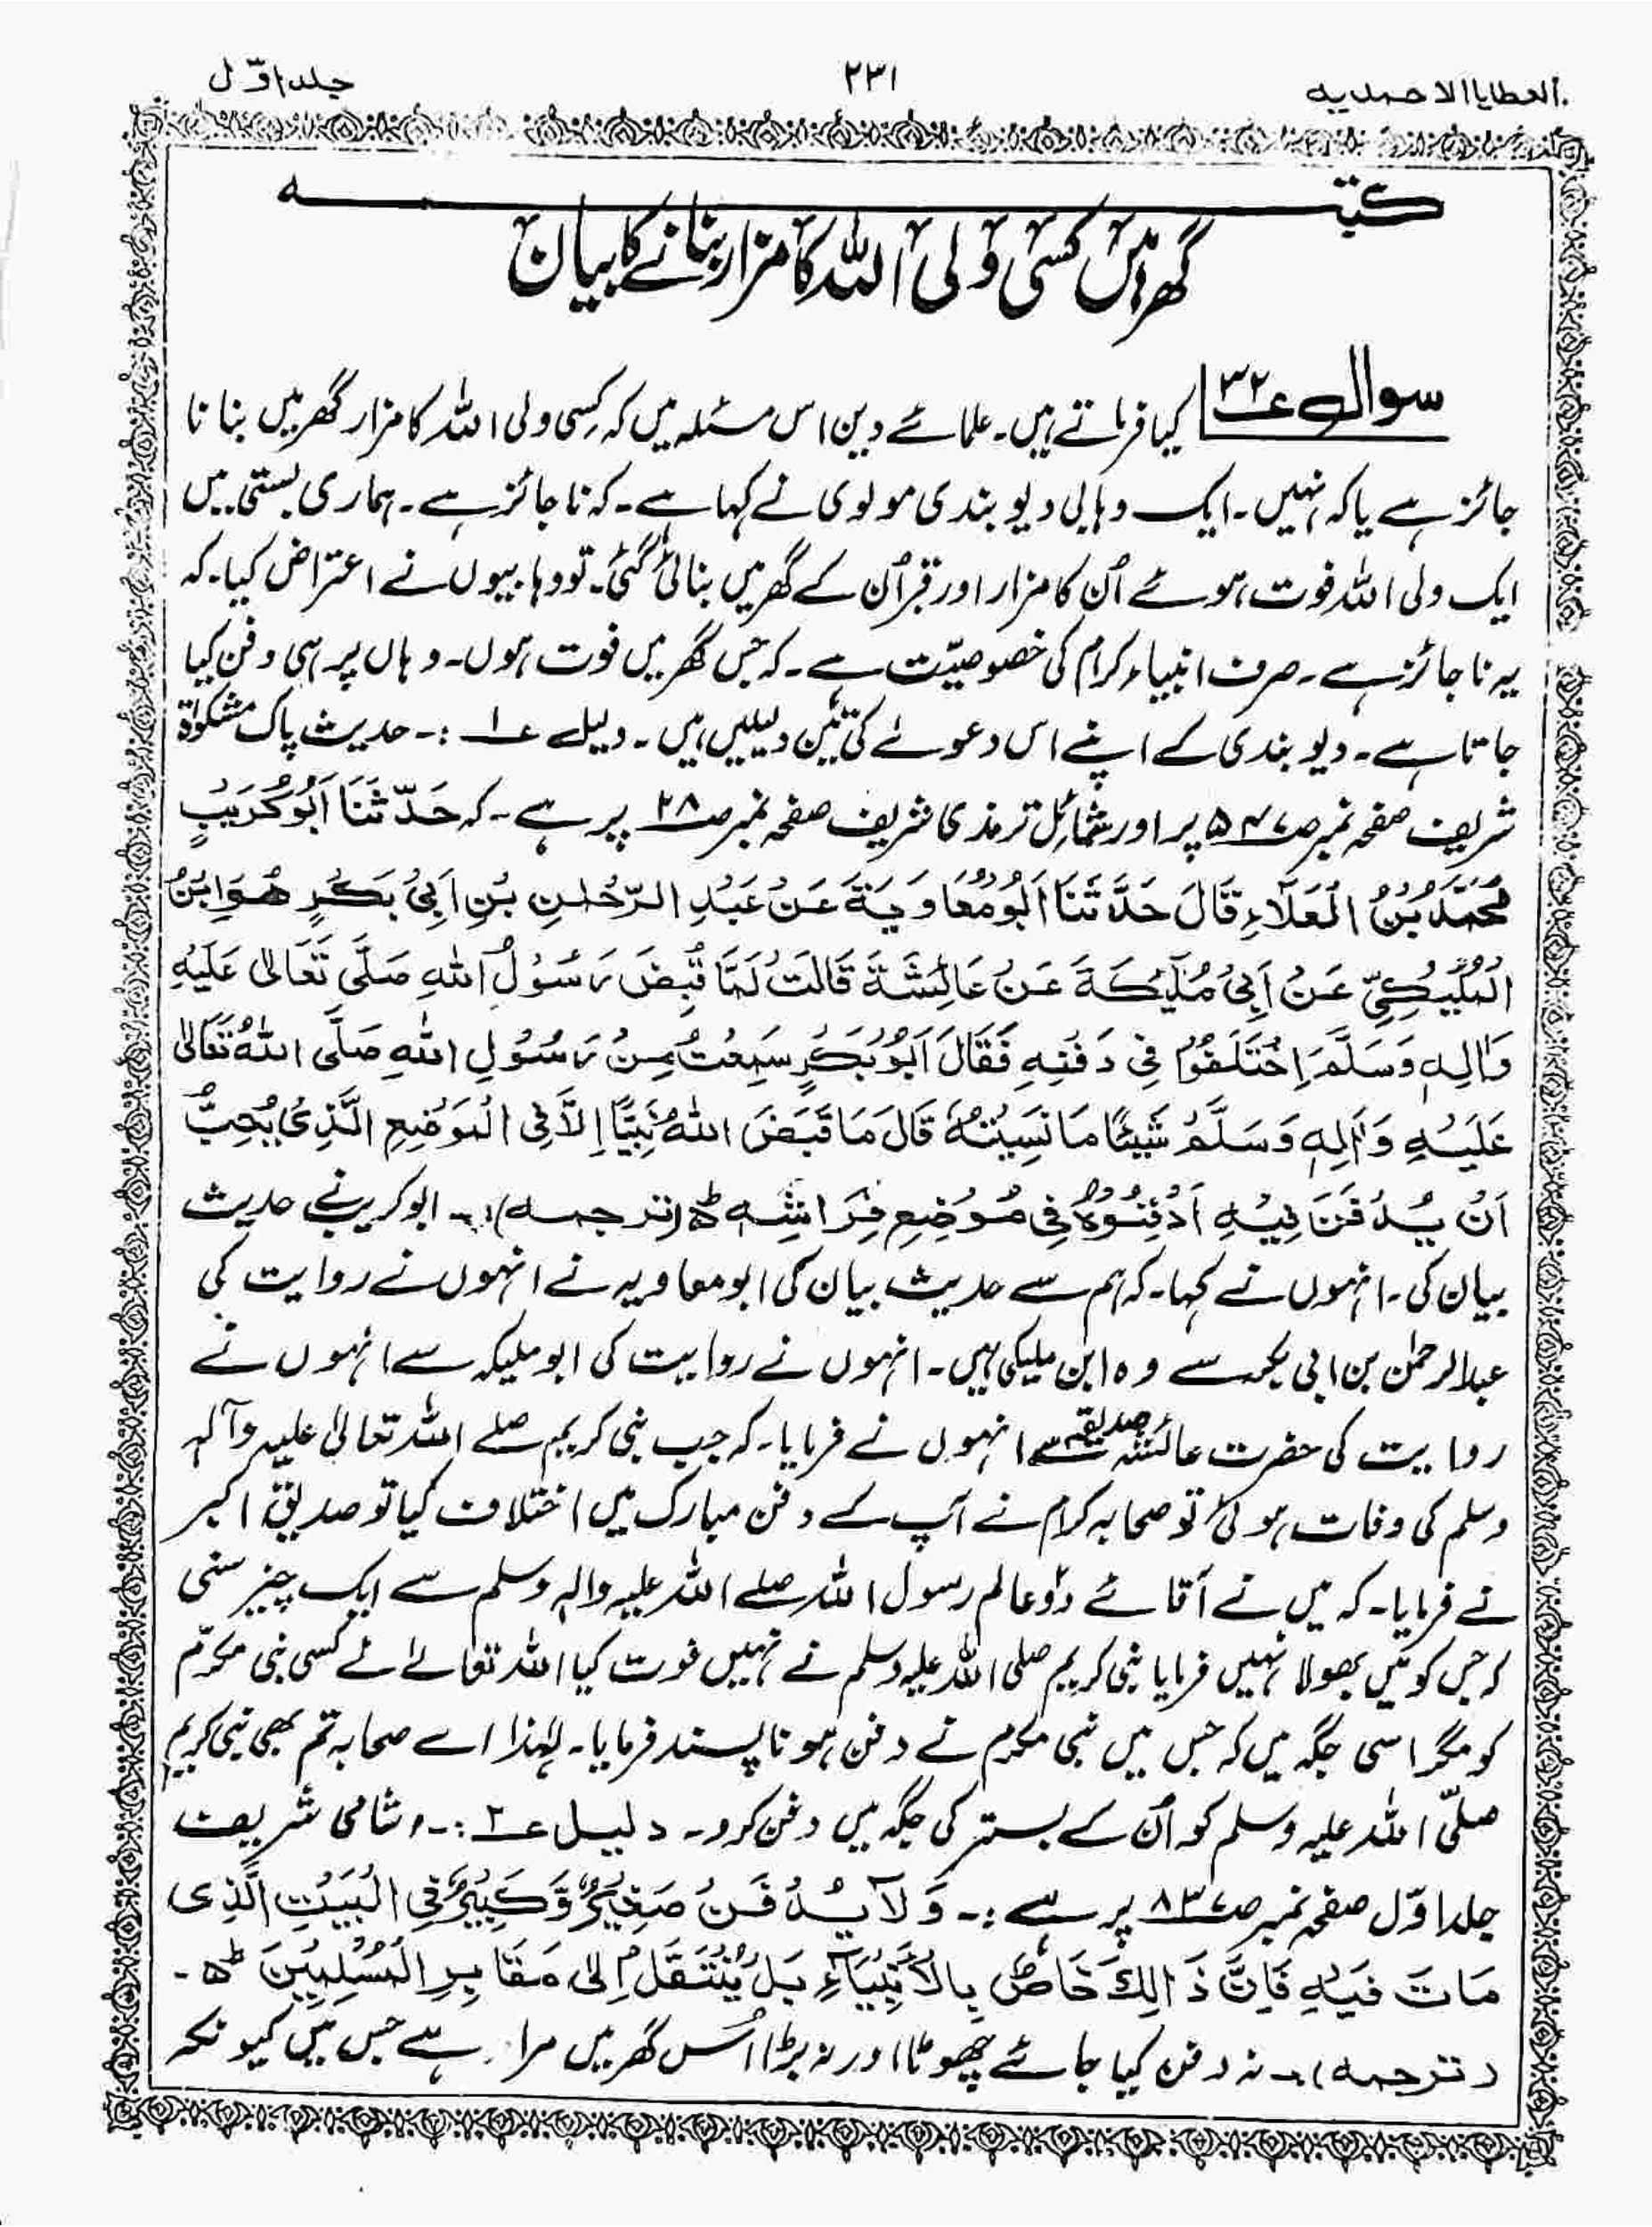 العطایا الاحمدیہ
۲۳۱
جلد اوّل
کتبہ
گھر میں کسی ولی اللہ کا مزار بنانے کا بیان
سوال ۳۲ کیا فرماتے ہیں۔ علمائے دین اس مسئلہ میں کہ کسی ولی اللہ کا مزار گھر میں بنانا
جائز ہے یا کہ نہیں۔ ایک وہابی دیو بندی مولوی نے کہا ہے۔ کہ نا جائز ہے۔ ہماری بستی میں
ایک ولی اللہ فوت ہوئے اُن کا مزار اور قبر اُن کے گھر میں بنائی گئی۔ تو وہابیوں نے اعتراض کیا۔ کہ
یہ نا جائز ہے۔ صرف انبیاء کرام کی خصوصیّت ہے۔ کہ جس گھر میں فوت ہوں۔ وہاں پر ہی دفن کیا
جاتا ہے۔ دیو بندی کے اپنے اس دعوےٰ کی تین دلیلیں ہیں۔ دلیل ۱ :۔ حدیث پاک مشکوٰۃ
شریف صفحہ نمبر ص۵۴۷ پر اور شمائل ترمذی شریف صفحہ نمبر ص۲۸ پر ہے۔ کہ حَدَّثَنَا اَبُوْ كُرَيْبٍ
مُحَمَّدُ بْنُ الْعَلَآءِ قَالَ حَدَّثَنَا اَبُوْ مُعَاوِيَةَ عَنْ عَبْدِ الرَّحْمٰنِ بْنِ اَبِيْ بَكْرٍ هُوَ ابْنُ
الْمُلَيْكِيِّ عَنْ اَبِيْ مُلَيْكَةَ عَنْ عَائِشَةَ قَالَتْ لَمَّا قُبِضَ رَسُوْلُ اللهِ صَلَّى تَعَالٰى عَلَيْهِ
وَاٰلِهٖ وَسَلَّمَ اِخْتَلَفُوْا فِيْ دَفْنِهِ فَقَالَ اَبُوْ بَكْرٍ سَمِعْتُ مِنْ رَسُوْلِ اللهِ صَلَّى اللهُ تَعَالٰى
عَلَيْهِ وَاٰلِهٖ وَسَلَّمَ شَيْئًا مَا نَسِيْتُهٗ قَالَ مَا قَبَضَ اللهُ نَبِيًّا اِلَّا فِي الْمَوْضِعِ الَّذِيْ يُحِبُّ
اَنْ يُدْفَنَ فِيْهِ اَدْفِنُوْهُ فِيْ مَوْضِعِ فِرَاشِهٖ (ترجمہ):۔ ابو کریب نے حدیث
بیان کی۔ انہوں نے کہا۔ کہ ہم سے حدیث بیان کی ابو معاویہ نے انہوں نے روایت کی
عبدالرحمٰن بن ابی بکر سے وہ ابن ملیکی ہیں۔ انہوں نے روایت کی ابو ملیکہ سے انہوں نے
روایت کی حضرت عائشہ صدیقہ سے انہوں نے فرمایا۔ کہ جب نبی کریم صلے اللہ تعالیٰ علیہ وآلہ
وسلم کی وفات ہوئی تو صحابہ کرام نے آپ کے دفن مبارک میں اختلاف کیا تو صدیق اکبر
نے فرمایا۔ کہ میں نے آقائے دو عالم رسول اللہ صلے اللہ علیہ والہ وسلم سے ایک چیز سنی
کہ جس کو میں بھولا نہیں فرمایا نبی کریم صلی اللہ علیہ وسلم نے نہیں فوت کیا اللہ تعالےٰ نے کسی نبی مکرّم
کو مگر اسی جگہ میں کہ جس میں نبی مکرم نے دفن ہونا پسند فرمایا۔ لہٰذا اے صحابہ تم بھی نبی کریم
صلّی اللہ علیہ وسلم کو اُن کے بستر کی جگہ میں دفن کرو۔ دلیل ۲ :۔ شامی شریف
جلد اوّل صفحہ نمبر ص۸۳۷ پر ہے :۔ وَلَا يُدْفَنُ صَغِيْرٌ وَّكَبِيْرٌ فِي الْبَيْتِ الَّذِى
مَاتَ فِيْهِ فَاِنَّ ذَالِكَ خَاصٌّ بِالْاَنْبِيَآءِ بَلْ يُنْتَقَلُ اِلٰى مَقَابِرِ الْمُسْلِمِيْنَ۔
(ترجمہ)۔ نہ دفن کیا جائے چھوٹا اور نہ بڑا اُس گھر میں مرا ہے جس میں کیونکہ